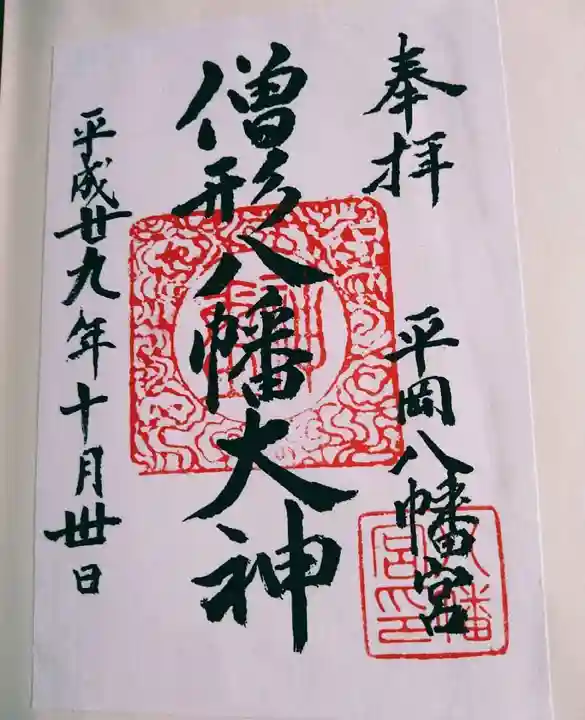 奉拝
平岡八幡宮
僧形八幡大神
平成廿九年十月丗日
八幡
宮印